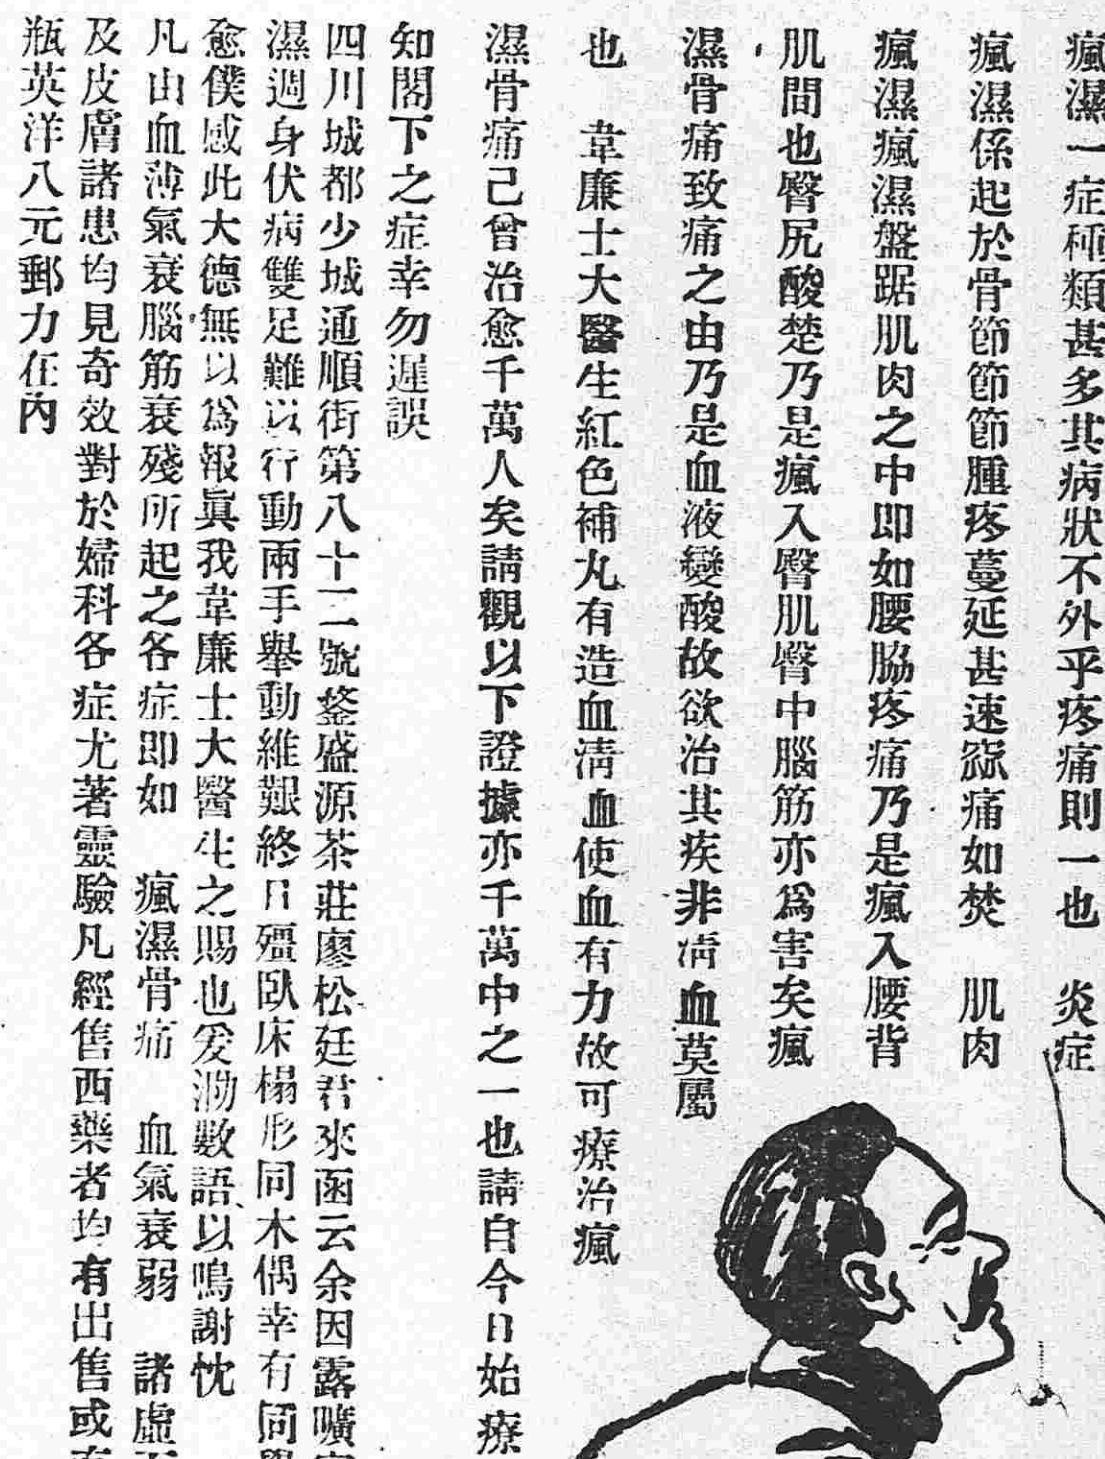 瘋濕一症種類甚多其病狀不外乎疼痛則一也 炎症
瘋濕係起於骨節節節腫疼蔓延甚速 痛如焚 肌肉
瘋濕瘋濕盤踞肌肉之中即如腰脇疼痛乃是瘋入腰背
肌間也臀尻酸楚乃是瘋入臀肌臀中腦筋亦為害矣瘋
濕骨痛致痛之由乃是血液變酸故欲治其疾非清血莫屬
也 韋廉士大醫生紅色補丸有造血清血使血有力故可療治瘋
濕骨痛己曾治愈千萬人矣請觀以下證據亦千萬中之一也請自今日始療
知閣下之症幸勿遲誤
四川城都少城通順街第八十二號鋆盛源茶莊廖松廷君來函云余因露曠
濕週身伏病雙足難以行動兩手舉動維艱終日殭臥床榻形同木偶幸有同學
愈僕感此大德無以為報眞我韋廉士大醫生之賜也爰泐數語以鳴謝忱
凡由血薄氣衰腦筋衰殘所起之各症即如 瘋濕骨痛 血氣衰弱 諸虛
及皮膚諸患均見奇效對於婦科各症尤著靈驗凡經售西藥者均有出售或
瓶英洋八元郵力在內